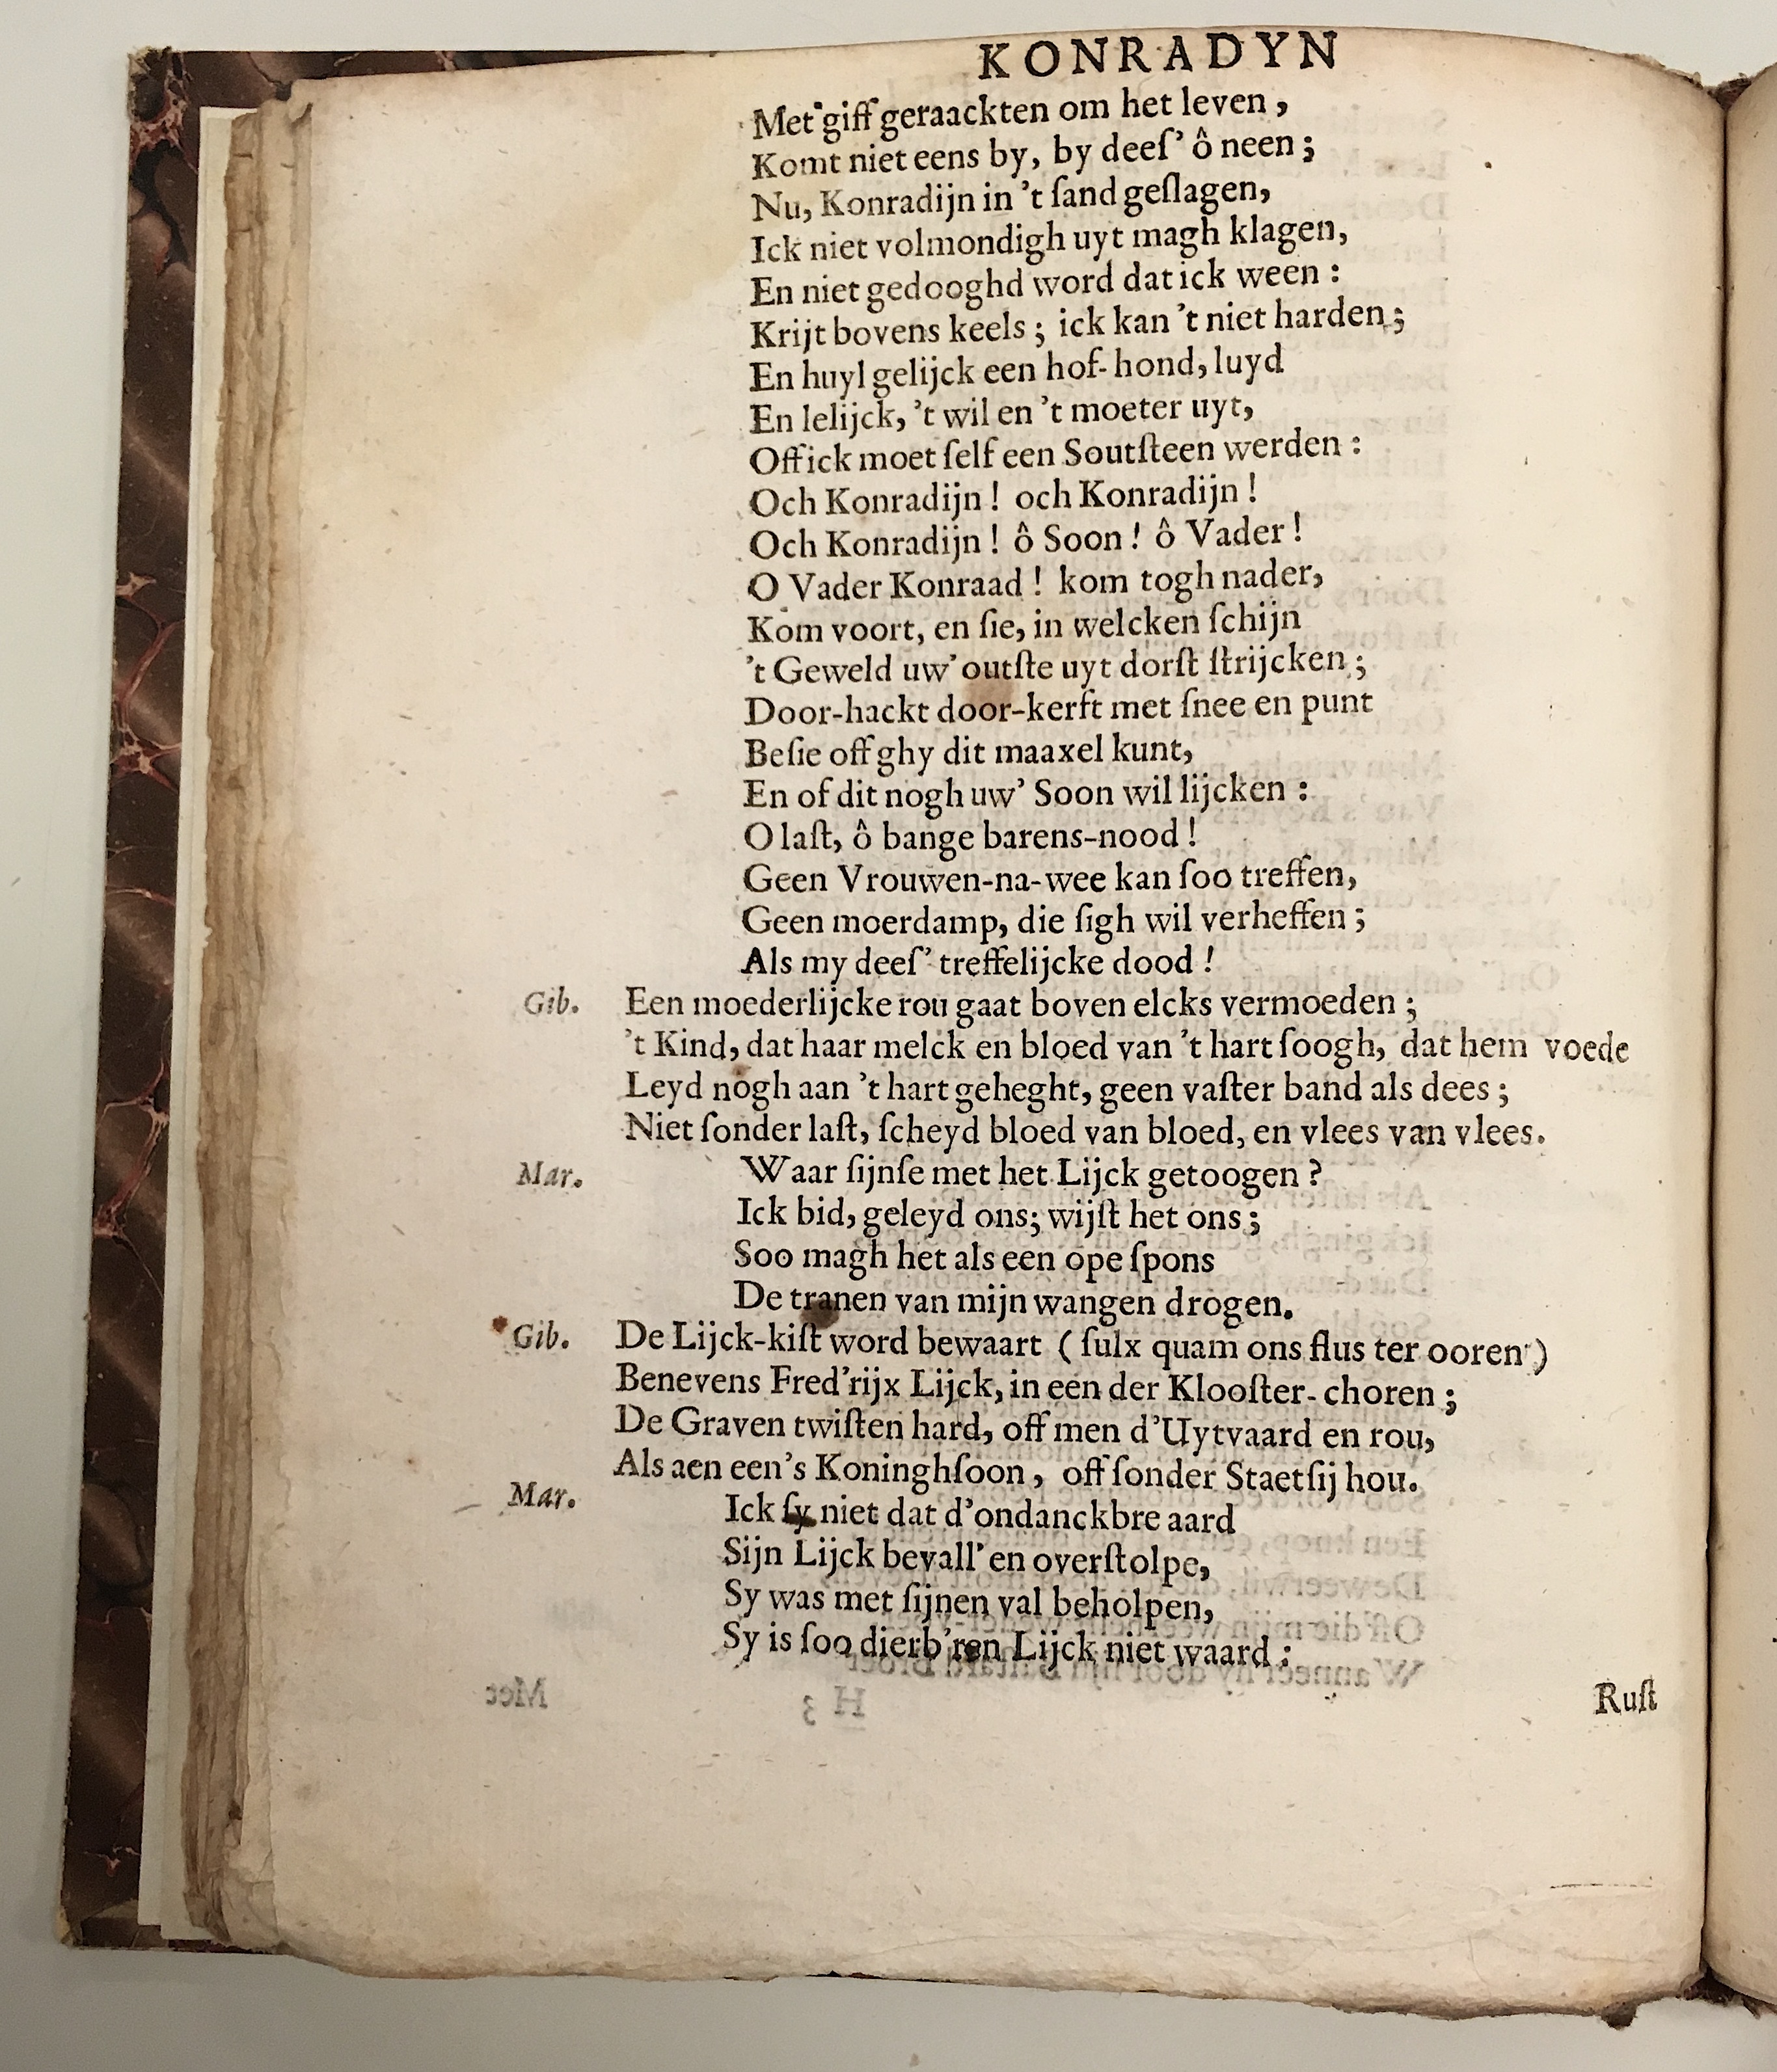 KONRADYN
Met giff geraackten om het leven,
Komt niet eens by, by deeſ' ô neen;
Nu, Konradijn in 't ſand geſlagen,
Ick niet volmondigh uyt magh klagen,
En niet gedooghd word dat ick ween:
Krijt bovens keels; ick kan 't niet harden;
En huyl gelijck een hof-hond, luyd
En lelijck, 't wil en 't moeter uyt,
Off ick moet ſelf een Soutſteen werden:
Och Konradijn! och Konradijn!
Och Konradijn! ô Soon! ô Vader!
O Vader Konraad! kom togh nader,
Kom voort, en ſie, in welcken ſchijn
't Geweld uw' outſte uyt dorſt ſtrijcken;
Door-hackt door-kerft met ſnee en punt
Beſie off ghy dit maaxel kunt,
En of dit nogh uw' Soon wil lijcken:
O laſt, ô bange barens-nood!
Geen Vrouwen-na-wee kan ſoo treffen,
Geen moerdamp, die ſigh wil verheffen;
Als my deeſ' treffelijcke dood!
Gib. Een moederlijcke rou gaat boven elcks vermoeden;
't Kind, dat haar melck en bloed van 't hart ſoogh, dat hem voede
Leyd nogh aan 't hart geheght, geen vaſter band als dees;
Niet ſonder laſt, ſcheyd bloed van bloed, en vlees van vlees.
Mar. Waar ſijnſe met het Lijck getoogen?
Ick bid, geleyd ons; wijſt het ons;
Soo magh het als een ope ſpons
De tranen van mijn wangen drogen.
Gib. De Lijck-kiſt word bewaart (ſulx quam ons flus ter ooren)
Benevens Fred'rijx Lijck, in een der Klooſter-choren;
De Graven twiſten hard, off men d'Uytvaard en rou,
Als aen een's Koninghſoon, off ſonder Staetſij hou.
Mar. Ick ſy niet dat d'ondanckbre aard
Sijn Lijck bevall' en overſtolpe,
Sy was met ſijnen val beholpen,
Sy is ſoo dierb'ren Lijck niet waard:
Ruſt